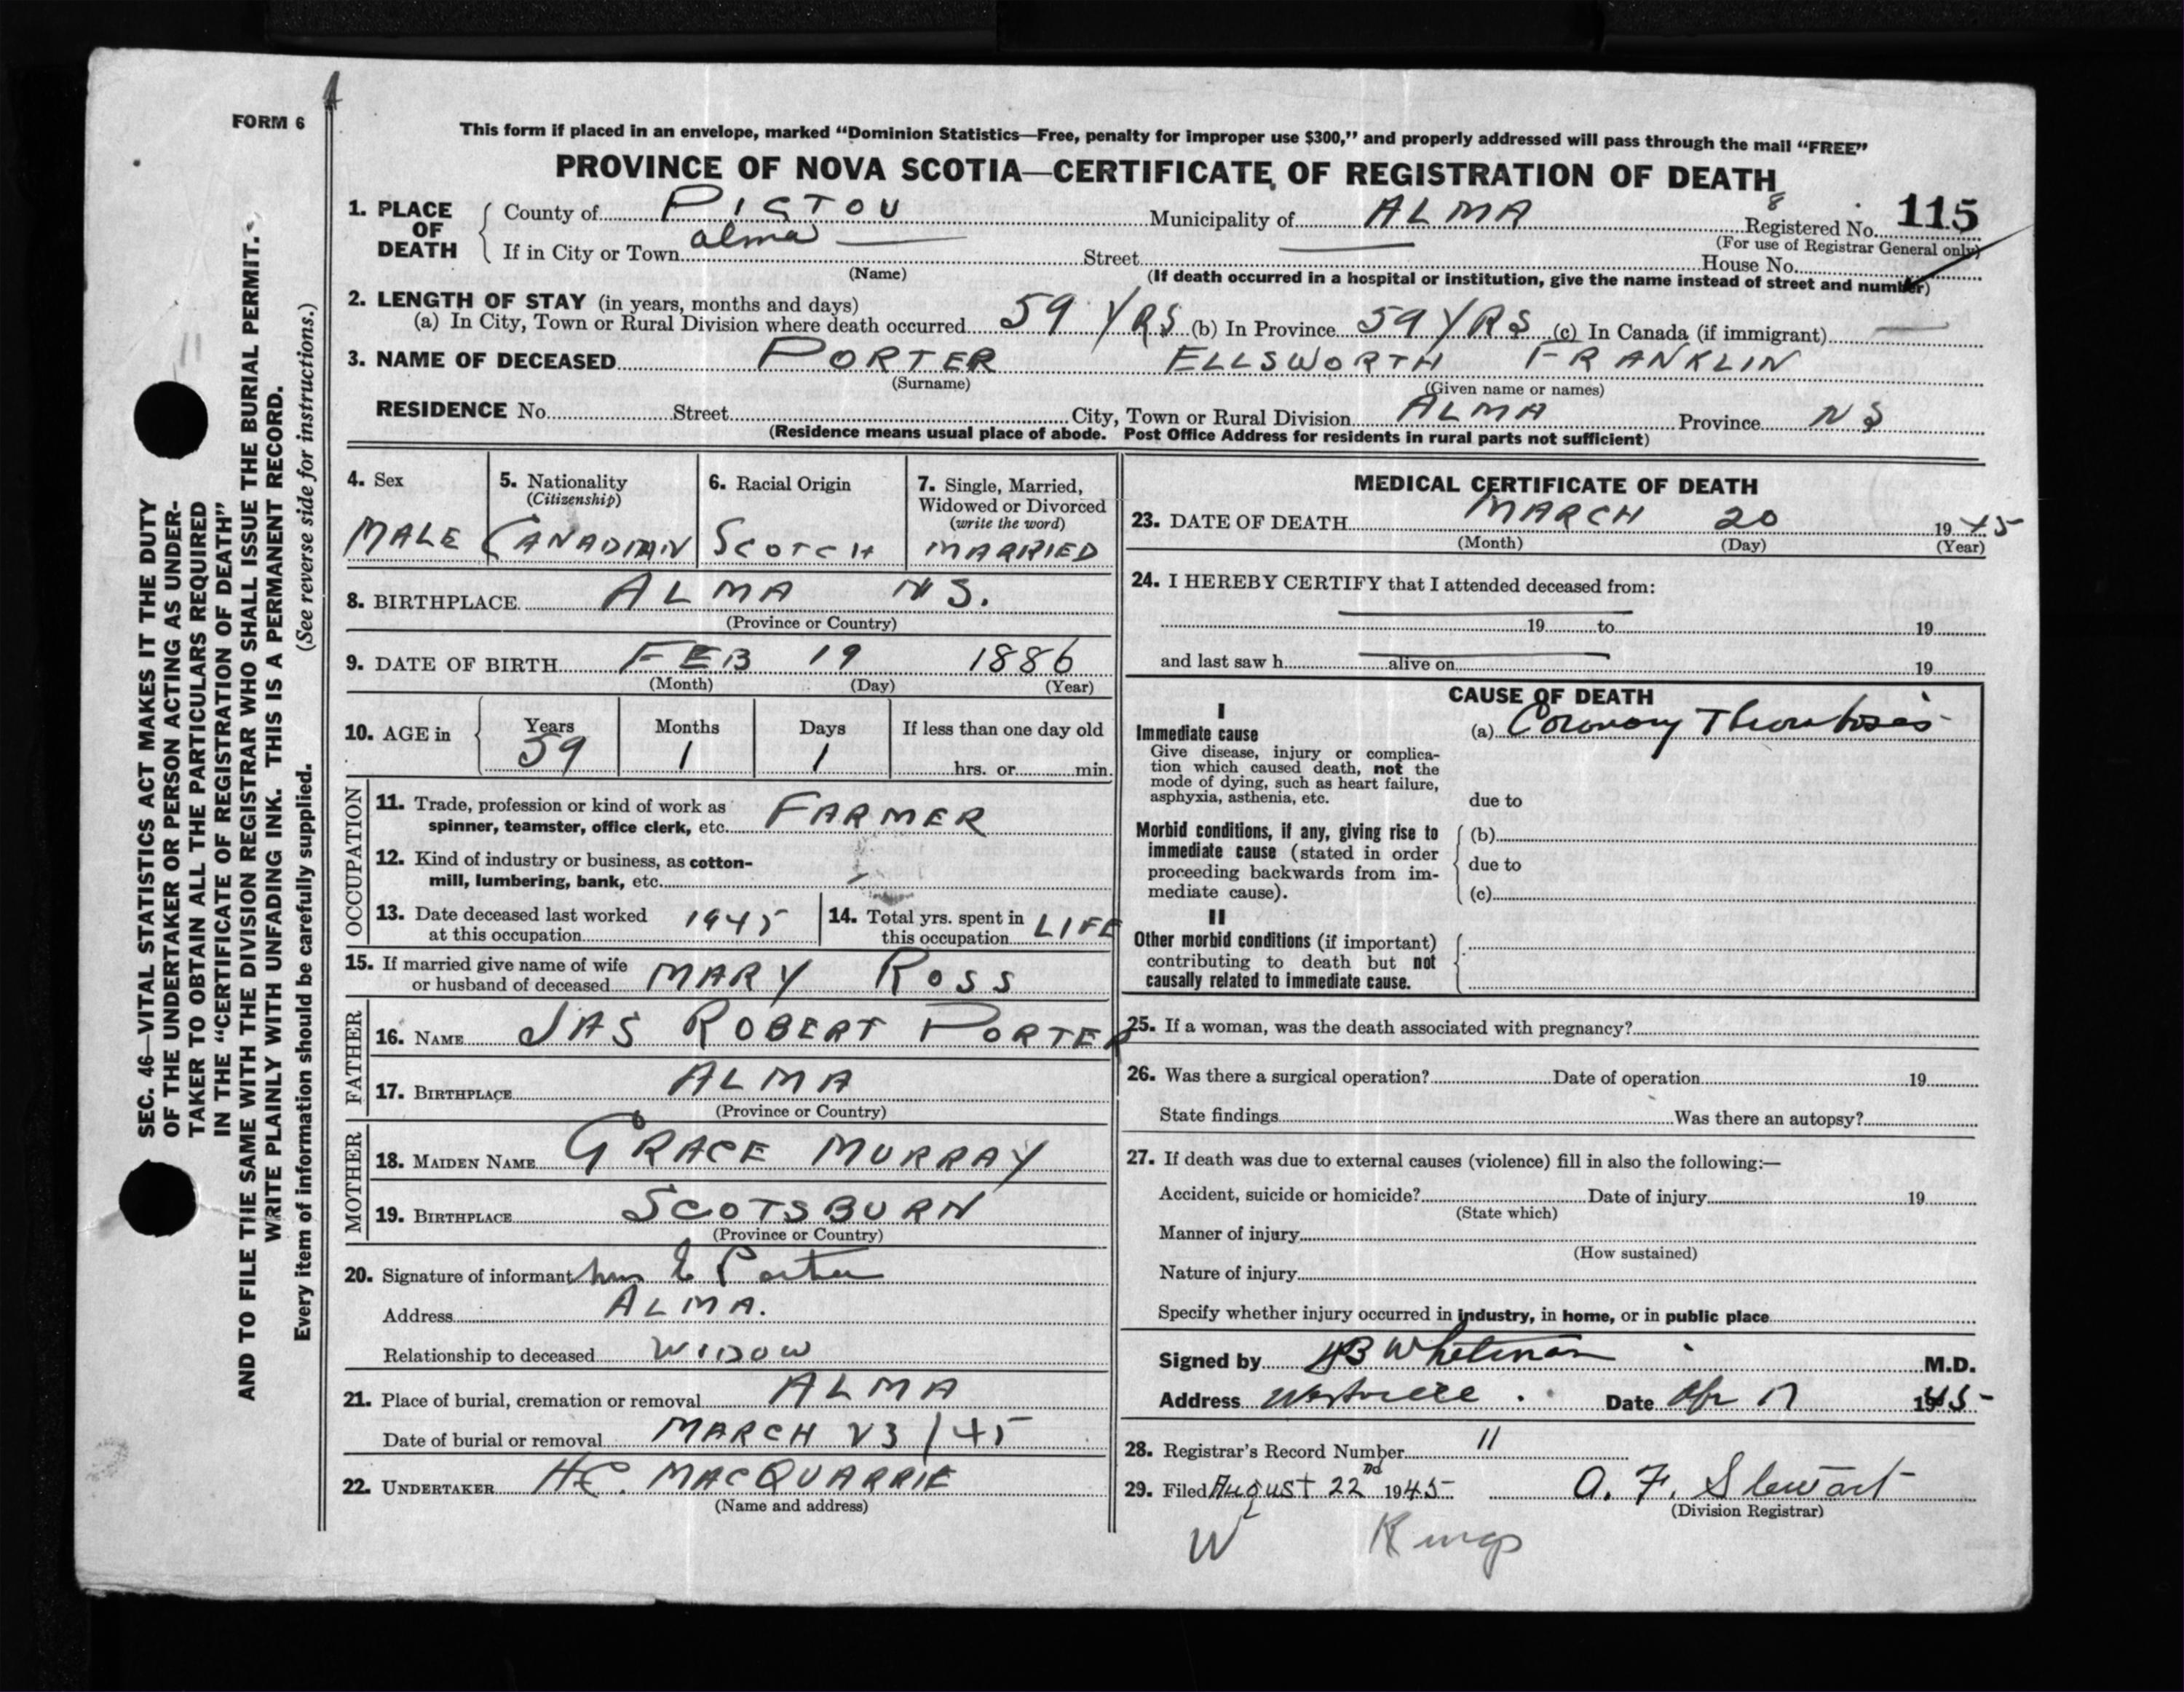 FORM 6
This form if placed in an envelope, marked "Dominion Statistics—Free, penalty for improper use $300," and properly addressed will pass through the mail "FREE"
PROVINCE OF NOVA SCOTIA—CERTIFICATE OF REGISTRATION OF DEATH
1. PLACE OF DEATH
County of PICTOU Municipality of ALMA Registered No. 115
8
(For use of Registrar General only)
If in City or Town alma Street House No.
(Name) (If death occurred in a hospital or institution, give the name instead of street and number)
2. LENGTH OF STAY (in years, months and days)
(a) In City, Town or Rural Division where death occurred 59 YRS (b) In Province 59 YRS (c) In Canada (if immigrant) —
3. NAME OF DECEASED PORTER ELLSWORTH FRANKLIN
(Surname) (Given name or names)
RESIDENCE No. Street City, Town or Rural Division ALMA Province NS
(Residence means usual place of abode. Post Office Address for residents in rural parts not sufficient)
4. Sex
MALE
5. Nationality
(Citizenship)
CANADIAN
6. Racial Origin
SCOTCH
7. Single, Married,
Widowed or Divorced
(write the word)
MARRIED
8. BIRTHPLACE ALMA NS.
(Province or Country)
9. DATE OF BIRTH FEB 19 1886
(Month) (Day) (Year)
10. AGE in Years Months Days If less than one day old
59 1 1 hrs. or min.
OCCUPATION
11. Trade, profession or kind of work as
spinner, teamster, office clerk, etc. FARMER
12. Kind of industry or business, as cotton-
mill, lumbering, bank, etc.
13. Date deceased last worked
at this occupation 1945
14. Total yrs. spent in
this occupation LIFE
15. If married give name of wife
or husband of deceased MARY ROSS
FATHER
16. NAME JAS ROBERT PORTER
17. BIRTHPLACE ALMA
(Province or Country)
MOTHER
18. MAIDEN NAME GRACE MURRAY
19. BIRTHPLACE SCOTSBURN
(Province or Country)
20. Signature of informant Mrs E Porter
Address ALMA.
Relationship to deceased WIDOW
21. Place of burial, cremation or removal ALMA
Date of burial or removal MARCH 23/45
22. UNDERTAKER H.C. MACQUARRIE
(Name and address)
MEDICAL CERTIFICATE OF DEATH
23. DATE OF DEATH MARCH 20 1945
(Month) (Day) (Year)
24. I HEREBY CERTIFY that I attended deceased from:
19 to 19
and last saw h alive on 19
CAUSE OF DEATH
I
Immediate cause
Give disease, injury or complica-
tion which caused death, not the
mode of dying, such as heart failure,
asphyxia, asthenia, etc.
(a) Coronary Thrombosis
due to
Morbid conditions, if any, giving rise to
immediate cause (stated in order
proceeding backwards from im-
mediate cause).
(b)
due to
(c)
II
Other morbid conditions (if important)
contributing to death but not
causally related to immediate cause.
25. If a woman, was the death associated with pregnancy?
26. Was there a surgical operation? Date of operation 19
State findings Was there an autopsy?
27. If death was due to external causes (violence) fill in also the following:—
Accident, suicide or homicide? Date of injury 19
(State which)
Manner of injury
(How sustained)
Nature of injury
Specify whether injury occurred in industry, in home, or in public place
Signed by HB Whitman M.D.
Address Westville Date Apr 17 1945
28. Registrar's Record Number 11
29. Filed August 22nd 1945 A. F. Stewart
(Division Registrar)
W Kings
SEC. 46—VITAL STATISTICS ACT MAKES IT THE DUTY
OF THE UNDERTAKER OR PERSON ACTING AS UNDER-
TAKER TO OBTAIN ALL THE PARTICULARS REQUIRED
IN THE "CERTIFICATE OF REGISTRATION OF DEATH"
AND TO FILE THE SAME WITH THE DIVISION REGISTRAR WHO SHALL ISSUE THE BURIAL PERMIT.
WRITE PLAINLY WITH UNFADING INK. THIS IS A PERMANENT RECORD.
Every item of information should be carefully supplied. (See reverse side for instructions.)
11